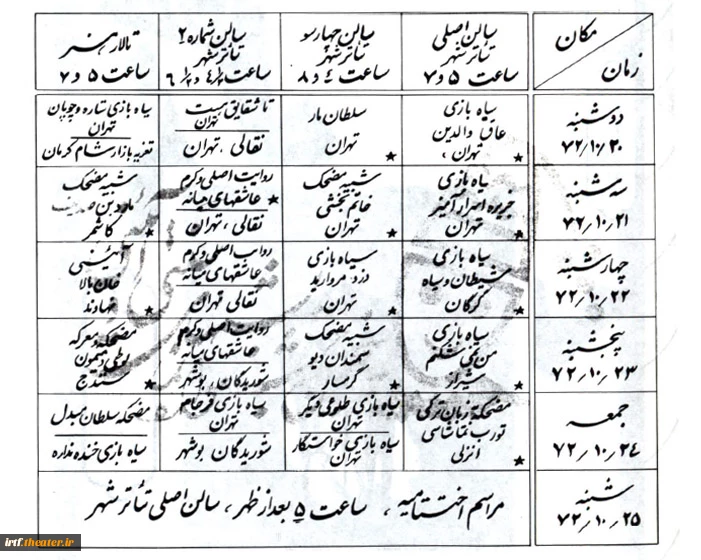 مکان
زمان
سالن اصلی
تئاتر شهر
ساعت ۵ و ۷
سالن چهارسو
تئاتر شهر
ساعت ۴ و ۸
سالن شماره ۲
تئاتر شهر
ساعت ۴/۳۰ و ۶/۳۰
تالار هنر
ساعت ۵ و ۷
دوشنبه
۷۲،۱۰،۲۰
سیاه بازی
عاق والدین
تهران،
سلطان مار
تهران
تا شقایق هست
تهران
نقالی، تهران
سیاه بازی ستاره و چوپان
تهران
تعزیه بازار شام کرمان
سه شنبه
۷۲،۱۰،۲۱
سیاه بازی
جزیره اسرارآمیز
تهران
شبیه مضحک
خاتم بخشی
تهران
روایت اصلی و کرم
عاشقهای میانه
نقالی، تهران
شبیه مضحک
مارد بن صدیف
کاشمر
چهارشنبه
۷۲،۱۰،۲۲
سیاه بازی
شیطان و سیاه
گرگان
سیاه بازی
دزد مروارید
تهران
روایت اصلی و کرم
عاشقهای میانه
نقالی تهران
آئینی
خان بالا
نهاوند
پنجشنبه
۷۲،۱۰،۲۳
سیاه بازی
من نمی شکنم
شیراز
شبیه مضحک
سمندان دیو
گرمسار
روایت اصلی و کرم
عاشقهای میانه
شوریدگان، بوشهر
مضحکه و معرکه
لوطی و میمون
سنندج
جمعه
۷۲،۱۰،۲۴
مضحکه زبان ترکی
تورب نقاشاسی
انزلی
سیاه بازی طلوعی دیگر
تهران
سیاه بازی خواستگار
تهران
سیاه بازی فرجام
تهران
شوریدگان بوشهر
مضحکه سلطان مبدل
سیاه بازی خنده نداره
شنبه
۷۲،۱۰،۲۵
مراسم اختتامیه، ساعت ۵ بعد از ظهر، سالن اصلی تئاتر شهر
irtf.theater.ir